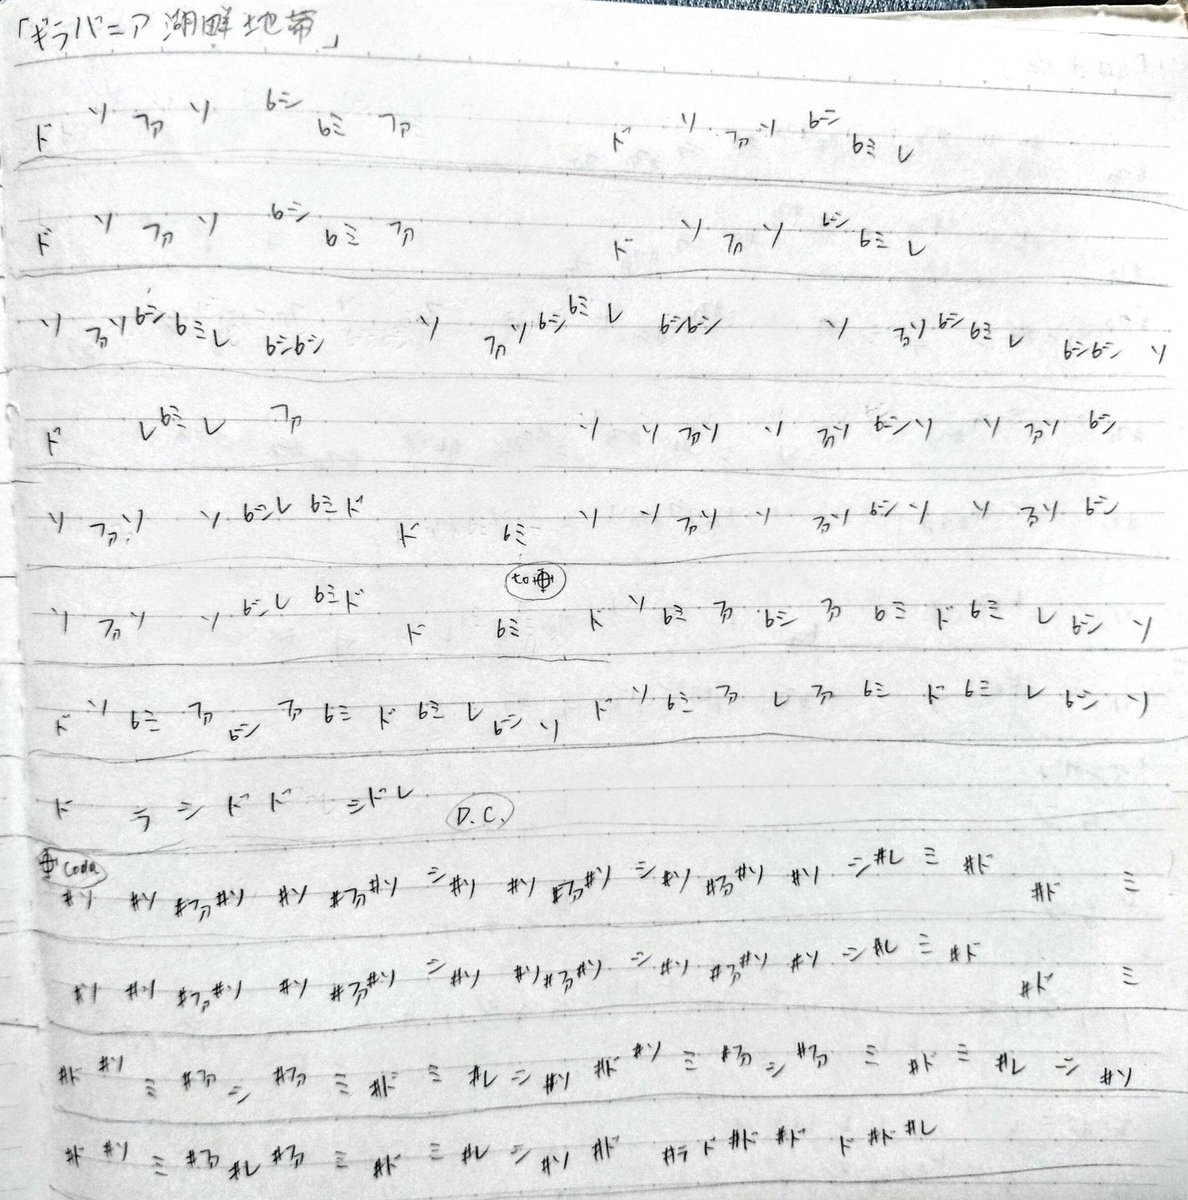 「ギラバニア湖畔地帯」
ド ソ ファ ソ ♭シ ♭ミ ファ ド ソ ファ ソ ♭シ ♭ミ レ
ド ソ ファ ソ ♭シ ♭ミ ファ ド ソ ファ ソ ♭シ ♭ミ レ
ソ ファ ソ ♭シ ♭ミ レ ♭シ ♭シ ソ ファ ソ ♭シ ♭ミ レ ♭シ ♭シ ソ ファ ソ ♭シ ♭ミ レ ♭シ ♭シ ソ
ド レ ♭ミ レ ファ ソ ソ ファ ソ ソ ファ ソ ♭シ ソ ソ ファ ソ ♭シ
ソ ファ ソ ソ ♭シ レ ♭ミ ド ド ♭ミ ソ ソ ファ ソ ソ ファ ソ ♭シ ソ ソ ファ ソ ♭シ
to
ソ ファ ソ ソ ♭シ レ ♭ミ ド ド ♭ミ ド ソ ♭ミ ファ ♭シ ファ ♭ミ ド ♭ミ レ ♭シ ソ
ド ソ ♭ミ ファ ♭シ ファ ♭ミ ド ♭ミ レ ♭シ ソ ド ソ ♭ミ ファ レ ファ ♭ミ ド ♭ミ レ ♭シ ソ
ド ラ シ ド ド ミ ド レ D.C.
Coda
#ソ #ソ #ファ #ソ #ソ #ファ #ソ シ #ソ #ソ #ファ #ソ シ #ソ #ファ #ソ #ソ シ #レ ミ #ド #ド ミ
#ソ #ソ #ファ #ソ #ソ #ファ #ソ シ #ソ #ソ #ファ #ソ シ #ソ #ファ #ソ #ソ シ #レ ミ #ド #ド ミ
#ド #ソ ミ #ファ シ #ファ ミ #ド ミ #レ シ #ソ #ド #ソ ミ #ファ シ #ファ ミ #ド ミ #レ シ #ソ
#ド #ソ ミ #ファ #レ #ファ ミ #ド ミ #レ シ #ソ #ド #ラ ド #ド #ド ド #ド #レ